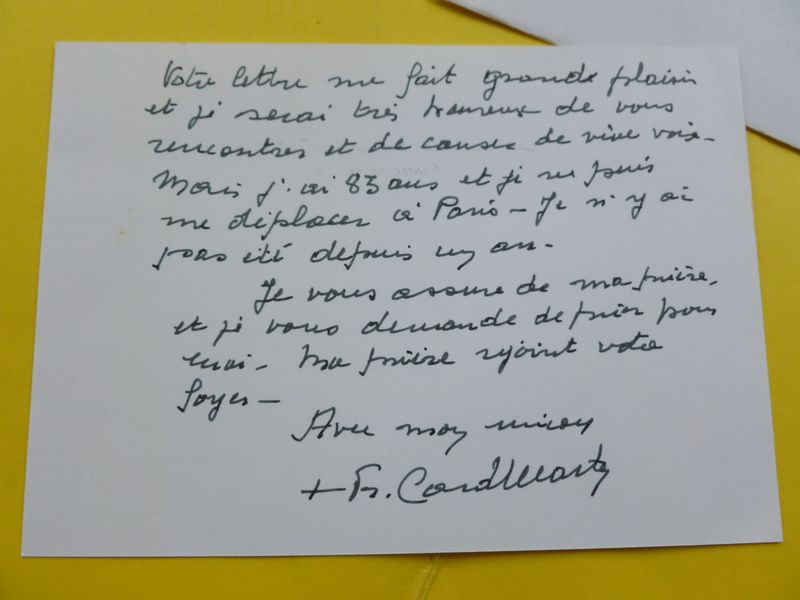 Votre lettre me fait grande plaisir
et je serai très heureux de vous
rencontrer et de causer de vive voix -
Mais j'ai 83 ans et je ne puis
me déplacer à Paris - Je n'y ai
pas été depuis un an -
Je vous assure de ma prière,
et je vous demande de prier pour
moi - Ma prière rejoint votre
foyer -
Avec mon union
+ Fr. Card Marty